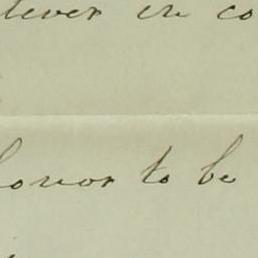 tever in co
honor to be